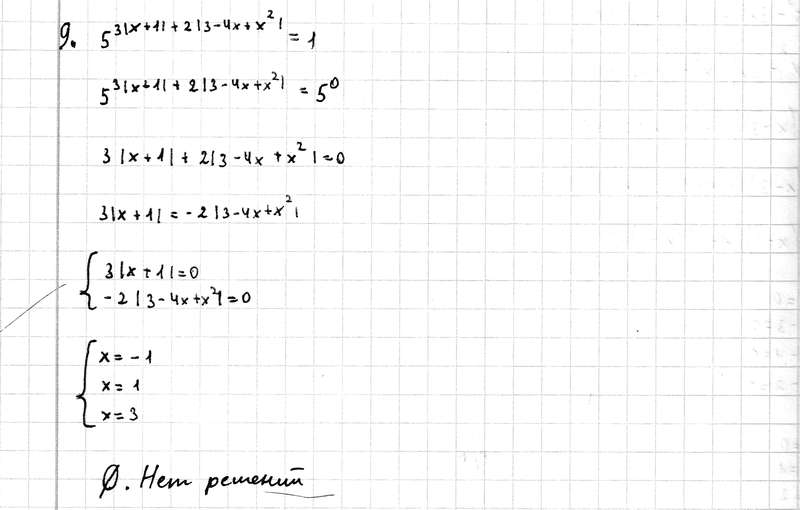 9. 5^{3|x+1|+2|3-4x+x²|} = 1
5^{3|x+1|+2|3-4x+x²|} = 5⁰
3|x+1|+2|3-4x+x²|=0
3|x+1|=-2|3-4x+x²|
{ 3|x+1|=0
-2|3-4x+x²|=0
{ x=-1
x=1
x=3
∅. Нет решений